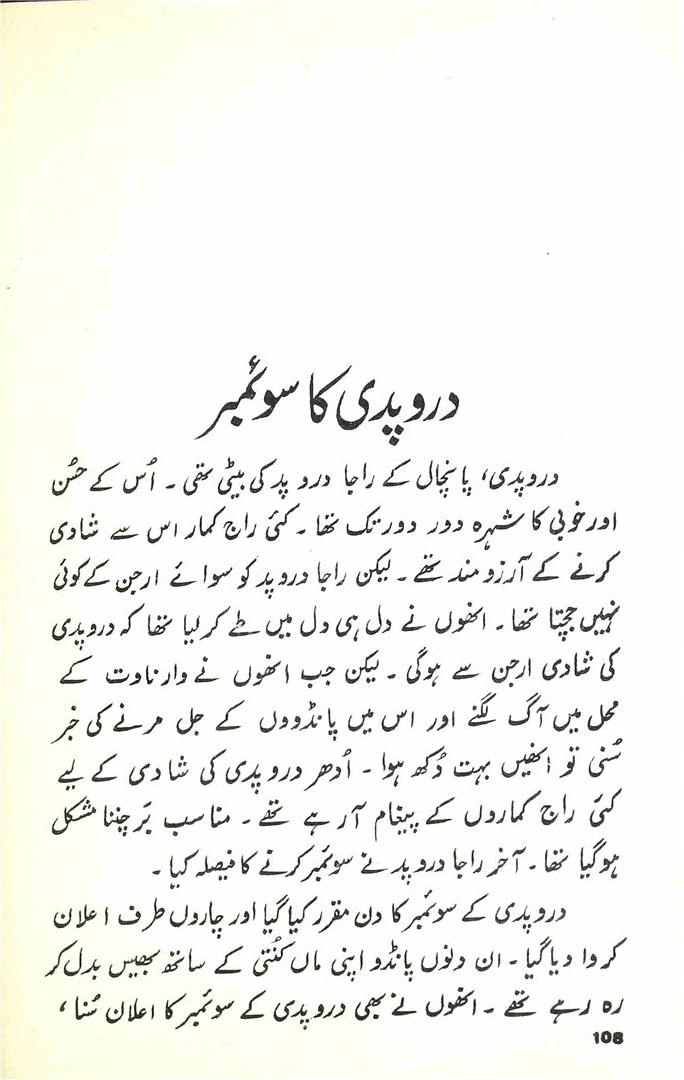 دروپدی کا سوئمبر
دروپدی، پانچال کے راجا دروپد کی بیٹی تھی ۔ اُس کے حُسن
اور خوبی کا شہرہ دور دور تک تھا ۔ کئی راج کمار اس سے شادی
کرنے کے آرزو مند تھے ۔ لیکن راجا دروپد کو سوائے ارجن کے کوئی
نہیں جچتا تھا ۔ انھوں نے دل ہی دل میں طے کر لیا تھا کہ دروپدی
کی شادی ارجن سے ہوگی ۔ لیکن جب انھوں نے وارناوت کے
محل میں آگ لگنے اور اس میں پانڈووں کے جل مرنے کی خبر
سُنی تو انھیں بہت دُکھ ہوا ۔ اُدھر دروپدی کی شادی کے لیے
کئی راج کماروں کے پیغام آ رہے تھے ۔ مناسب بَر چننا مشکل
ہوگیا تھا ۔ آخر راجا دروپد نے سوئمبر کرنے کا فیصلہ کیا ۔
دروپدی کے سوئمبر کا دن مقرر کیا گیا اور چاروں طرف اعلان
کروا دیا گیا ۔ ان دنوں پانڈو اپنی ماں کُنتی کے ساتھ بھیس بدل کر
رہ رہے تھے ۔ انھوں نے بھی دروپدی کے سوئمبر کا اعلان سُنا ،
108